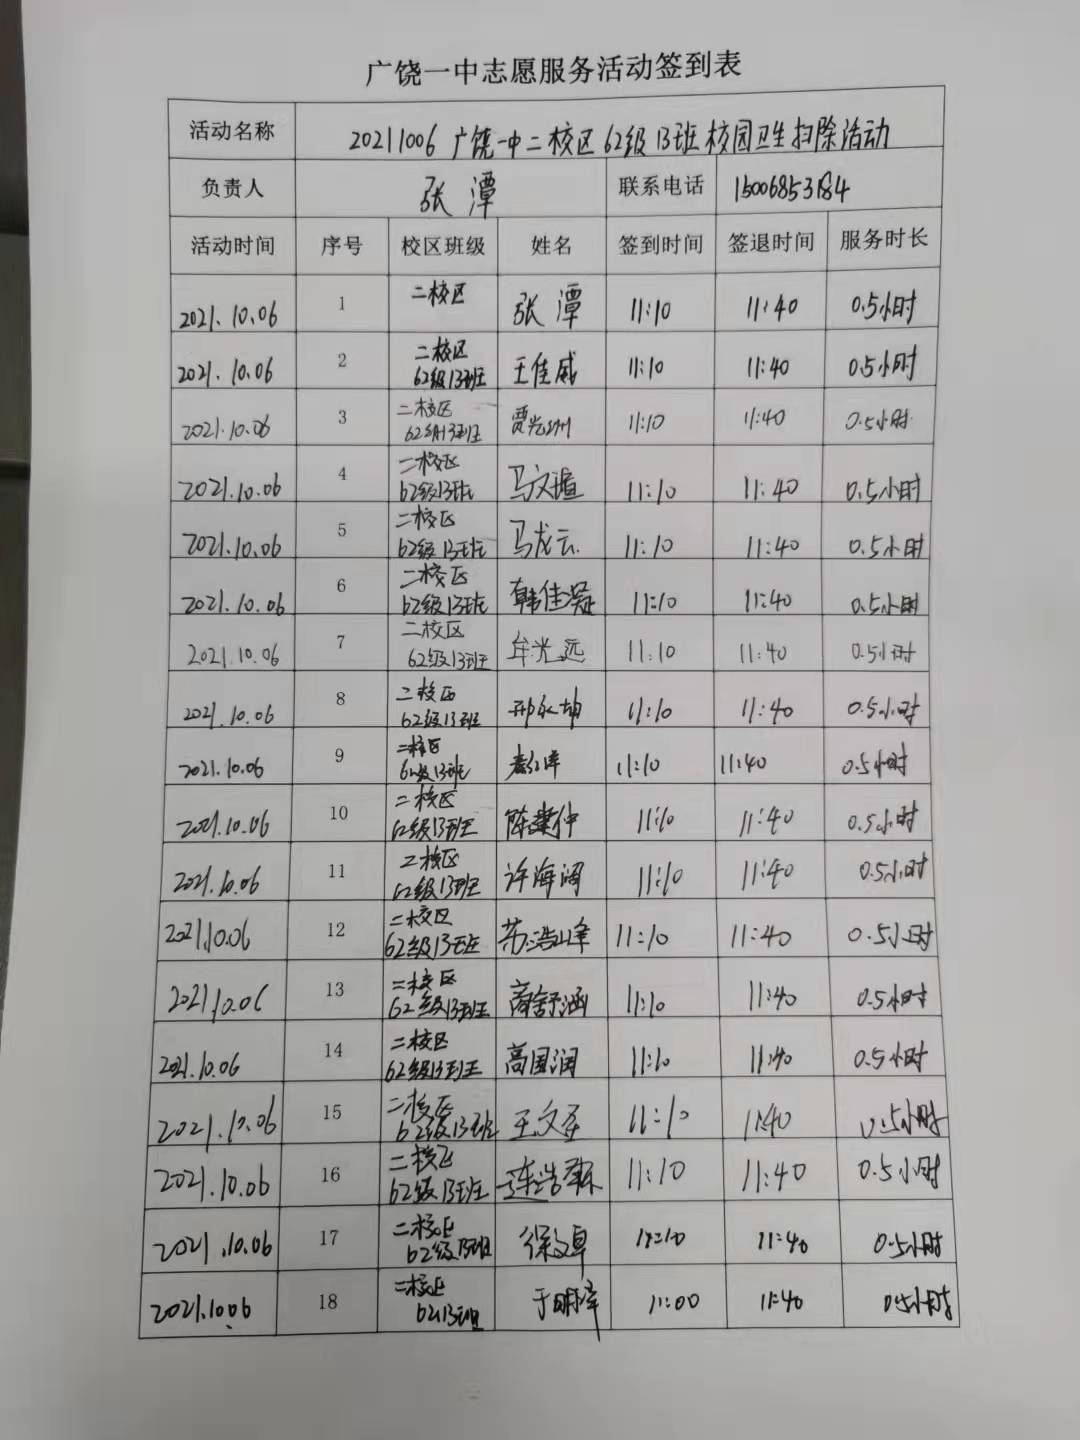 广饶一中志愿服务活动签到表
活动名称 20211006 广饶一中二校区62级13班校园卫生扫除活动
负责人 张潭 联系电话 15006853184
活动时间 序号 校区班级 姓名 签到时间 签退时间 服务时长
2021.10.06 1 二校区 张潭 11:10 11:40 0.5小时
2021.10.06 2 二校区 62级13班 王佳威 11:10 11:40 0.5小时
2021.10.06 3 二校区 62级13班 11:10 11:40 0.5小时
2021.10.06 4 二校区 62级13班 马文瑄 11:10 11:40 0.5小时
2021.10.06 5 二校区 62级13班 马龙云 11:10 11:40 0.5小时
2021.10.06 6 二校区 62级13班 韩佳凝 11:10 11:40 0.5小时
2021.10.06 7 二校区 62级13班 牟光远 11:10 11:40 0.5小时
2021.10.06 8 二校区 62级13班 邢永坤 11:10 11:40 0.5小时
2021.10.06 9 二校区 62级13班 11:10 11:40 0.5小时
2021.10.06 10 二校区 62级13班 陈建仲 11:10 11:40 0.5小时
2021.10.06 11 二校区 62级13班 许海阔 11:10 11:40 0.5小时
2021.10.06 12 二校区 62级13班 苏浩峰 11:10 11:40 0.5小时
2021.10.06 13 二校区 62级13班 商舒涵 11:10 11:40 0.5小时
2021.10.06 14 二校区 62级13班 高国润 11:10 11:40 0.5小时
2021.10.06 15 二校区 62级13班 11:10 11:40 0.5小时
2021.10.06 16 二校区 62级13班 11:10 11:40 0.5小时
2021.10.06 17 二校区 62级13班 徐文卓 11:10 11:40 0.5小时
2021.10.06 18 二校区 62级13班 于明泽 11:00 11:40 0.5小时